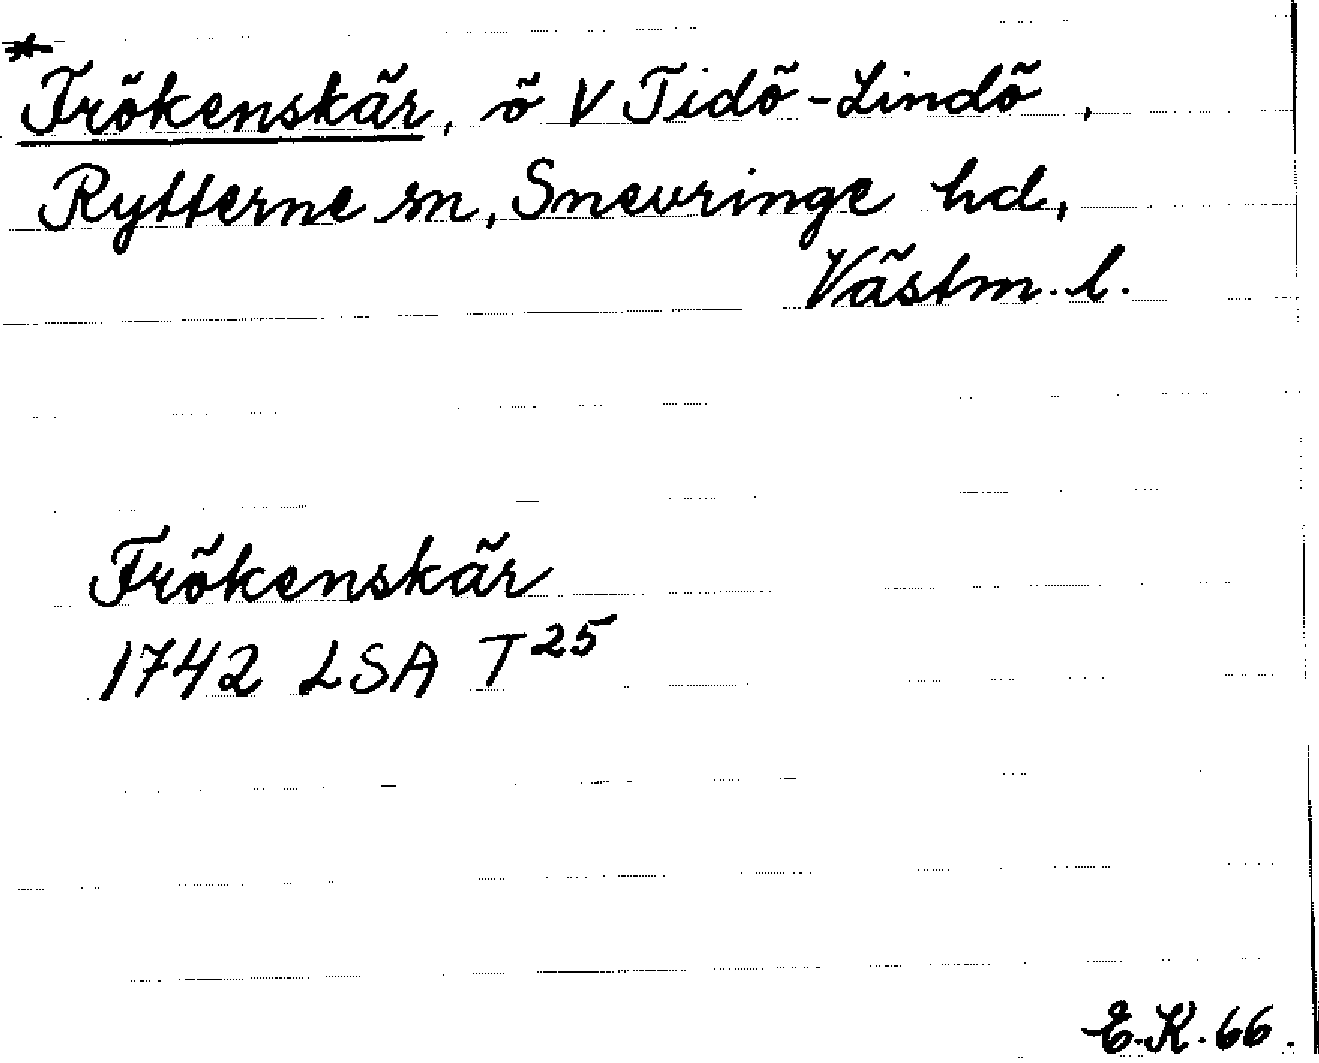 *Frökenskär, ö V Tidö-Lindö,
Rytterne sn, Snevringe hd,
Västm. l.
Frökenskär
1742 LSA T 25
E.K. 66.